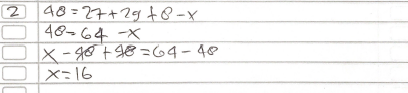 2 48=27+29+8-x
48=64 -x
x-48+48=64-48
x=16